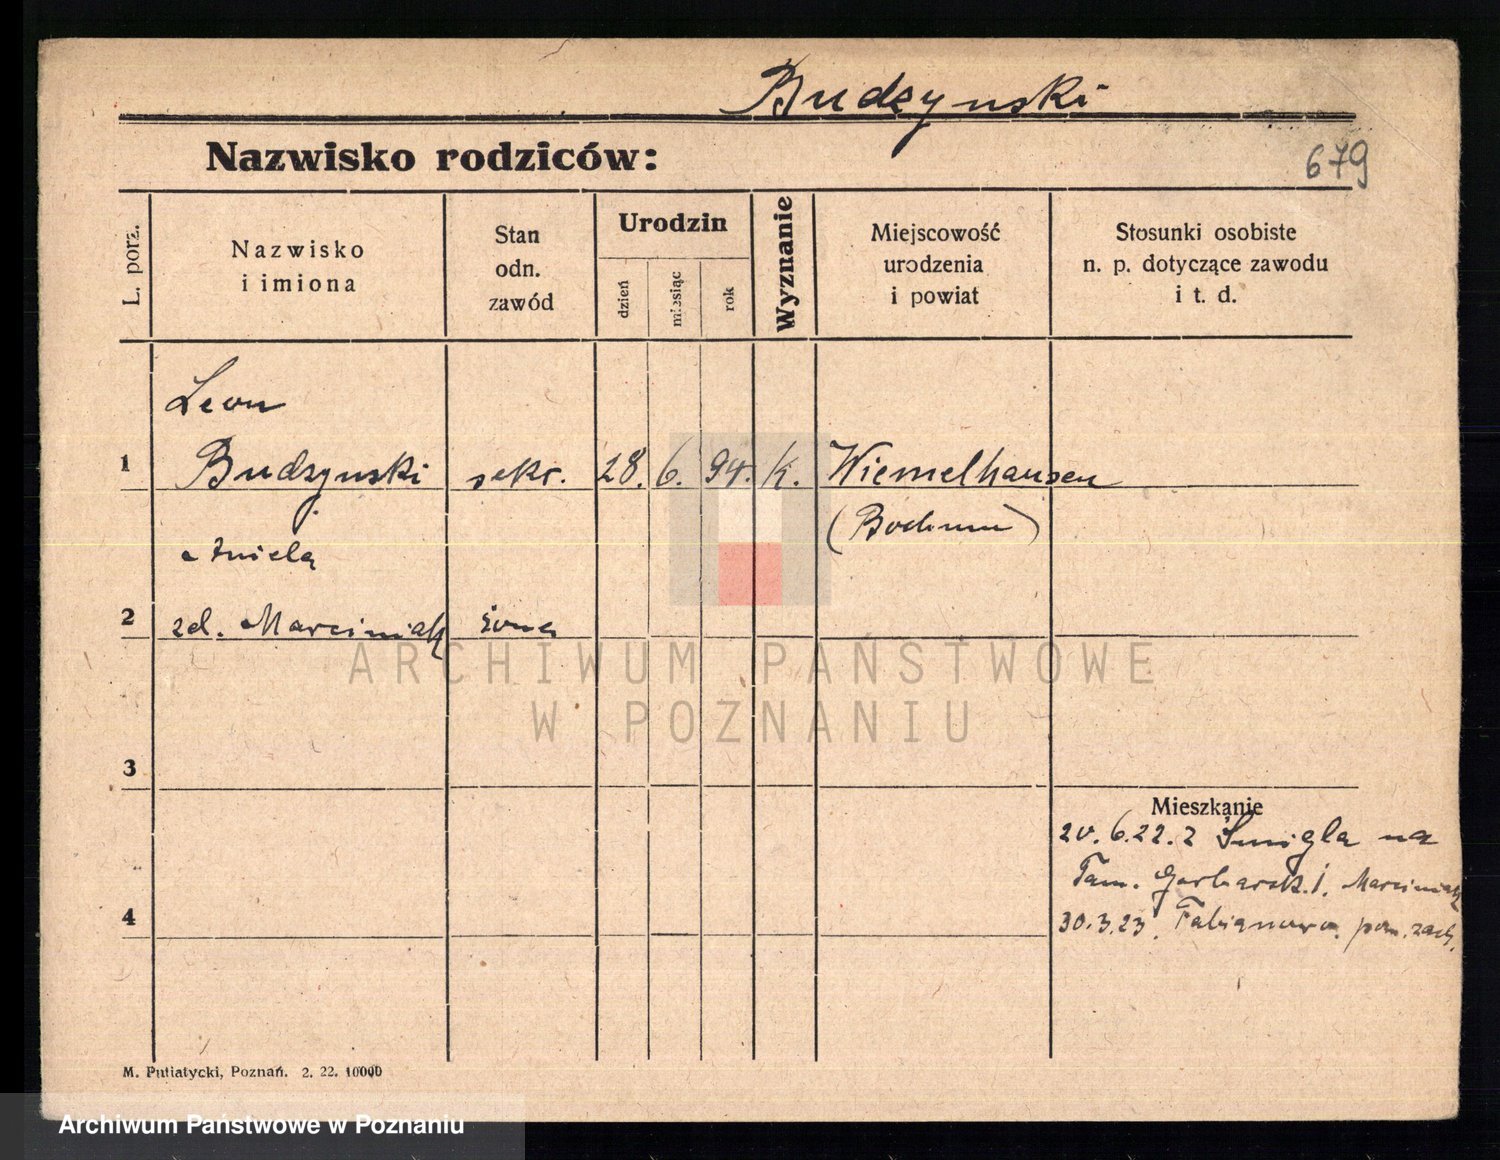 Budzynski
Nazwisko rodziców:
679
L. porz.
Nazwisko
i imiona
Stan
odn.
zawód
Urodzin
dzień
miesiąc
rok
Wyznanie
Miejscowość
urodzenia
i powiat
Stosunki osobiste
n. p. dotyczące zawodu
i t. d.
Leon
1 Budzynski sekr. 28. 6. 94. k. Wiemelhausen
(Bochum)
Aniela
2 zd. Marciniak żona
ARCHIWUM PAŃSTWOWE
W POZNANIU
3
Mieszkanie
20.6.22. z Śmigla na
Tam. Garbarsk. 1. Marciniak
4 30.3.23. Fabianowo, pow. zach.
M. Putiatycki, Poznań. 2. 22. 10000
Archiwum Państwowe w Poznaniu